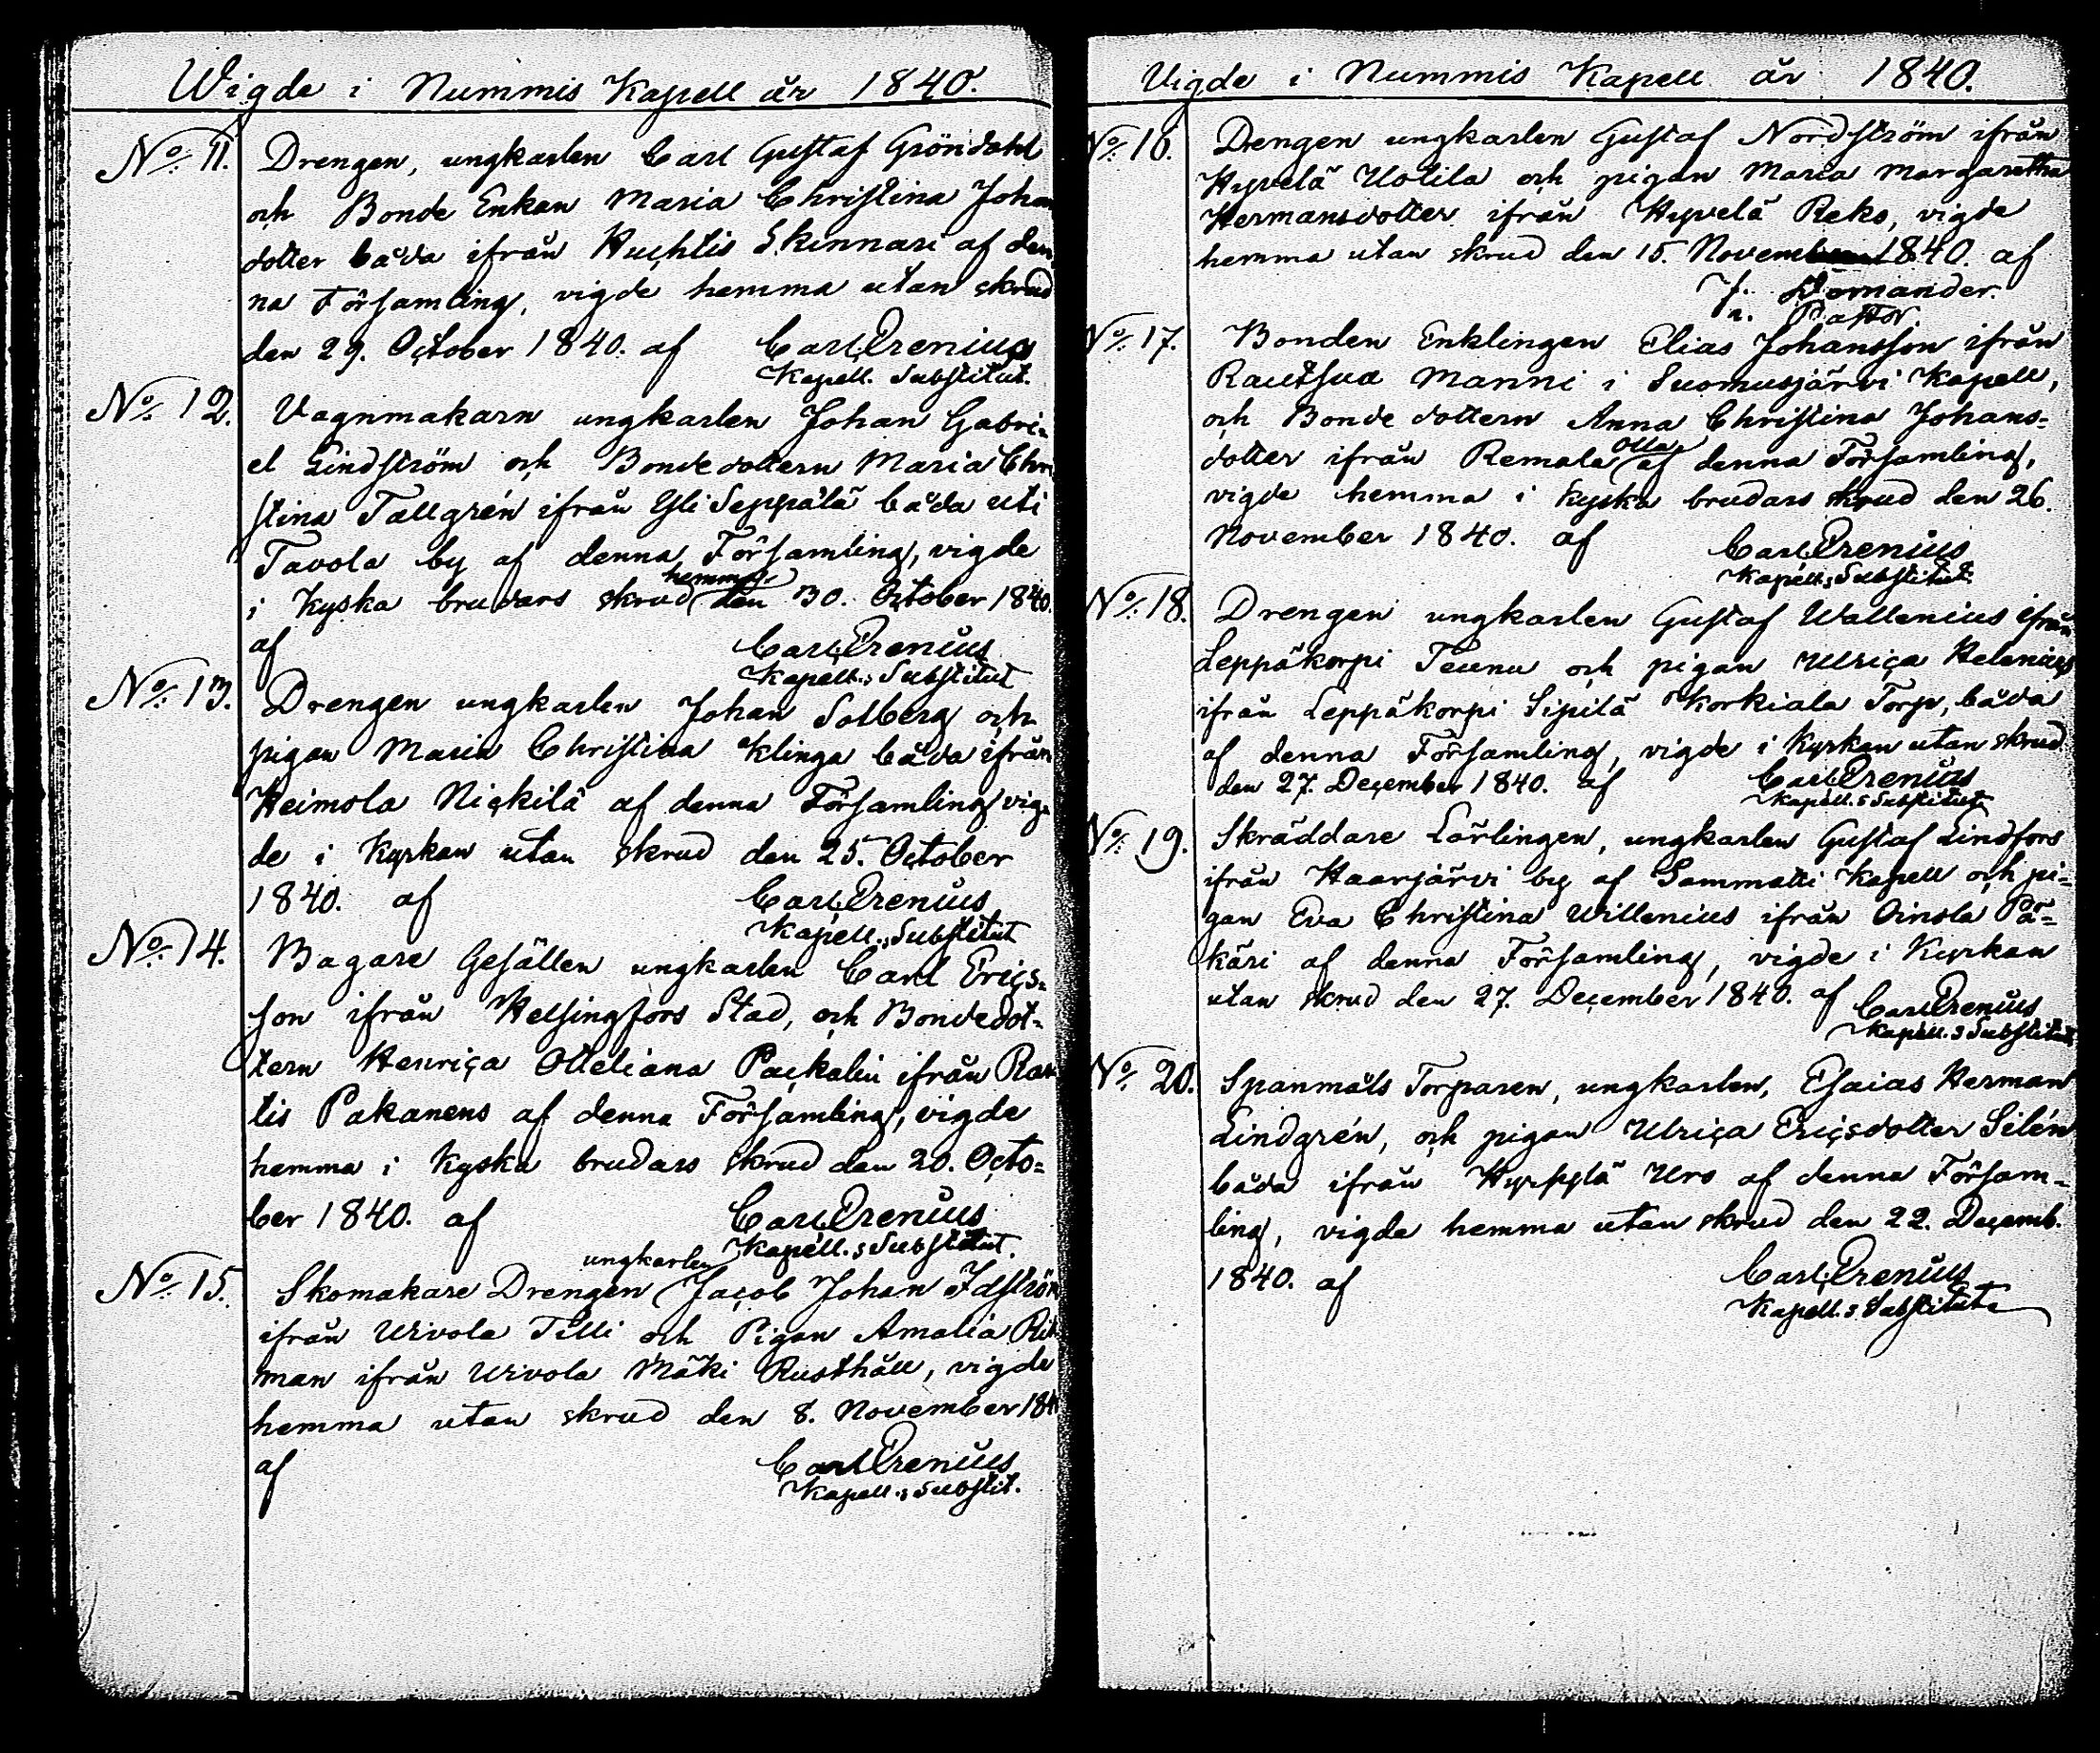 Wigde i Nummis Kapell år 1840.
No. 11. Drengen, ungkarlen Carl Gustaf Gröndahl
och Bonde Enkan Maria Christina Johan
dotter båda ifrån Huhtis Skinnari af den
na Församling, vigde hemma utan skrud
den 29. October 1840. af Carl Prenius
Kapell. Substitut.
No. 12. Vagnmakarn ungkarlen Johan Gabri-
el Lindström och Bondedottern Maria Chri
stina Tallgrén ifrån Yli Seppälä båda uti
Tavola by af denna Församling, vigde
i Kyska brudars skrud hemma den 30. October 1840.
af Carl Prenius
Kapell.s Substitut
No. 13. Drengen ungkarlen Johan Solberg och
pigan Maria Christina Klinga båda ifrån
Heimola Nickilä af denna Församling vig-
de i Kyrkan utan skrud den 25. October
1840. af Carl Prenius
Kapell.s Substitut
No. 14. Bagare Gesällen ungkarlen Carl Erics-
son ifrån Helsingfors Stad, och Bondedot-
tern Henrica Otteliana Packalin ifrån
tis Pakanens af denna Församling, vigde
hemma i Kyska brudars skrud den 20. Octo-
ber 1840. af Carl Prenius
Kapell.s Substitut.
No. 15. Skomakare Drengen ungkarlen Jacob Johan Idström
ifrån Uivola Tilli och Pigan Amalia
man ifrån Uivola Mäki Rusthåll, vigde
hemma utan skrud den 8. November 184
af Carl Prenius
Kapell.s Substit.
Vigde i Nummis Kapell år 1840.
No. 16. Drengen ungkarlen Gustaf Nordström ifrån
Hyvelä Uotila och pigan Maria Margaretha
Hermansdotter ifrån Hyvelä Reko, vigde
hemma utan skrud den 15. November 1840. af
J. Domander.
n. Pastor.
No. 17. Bonden Enklingen Elias Johansson ifrån
Rautsua Manni i Suomusjärvi Kapell,
och Bonde dottern Anna Christina Johans-
dotter ifrån Remala Olla af denna Församling,
vigde hemma i kyska brudars skrud den 26.
November 1840. af Carl Prenius
Kapell.s Substitut.
No. 18. Drengen ungkarlen Gustaf Wallenius ifrån
Leppäkorpi Teunu och pigan Ulrica Helenius
ifrån Leppäkorpi Sipilä Korkiala Torp, båda
af denna Församling, vigde i Kyrkan utan skrud
den 27. December 1840. af Carl Prenius
Kapell.s Substitut
No. 19. Skräddare Lärlingen, ungkarlen Gustaf Lindfors
ifrån Haarjärvi by af Sammatti Kapell och pi-
gan Eva Christina Willenius ifrån Oinola Pä-
käri af denna Församling, vigde i Kyrkan
utan skrud den 27. December 1840. af Carl Prenius
Kapell.s Substitut
No. 20. Spanmåls Torparen, ungkarlen, Esaias Herman
Lindgrén, och pigan Ulrica Ericsdotter Silén
båda ifrån Hyrsylä Uro af denna Försam-
ling, vigde hemma utan skrud den 22. Decemb.
1840. af Carl Prenius
Kapell.s Substitut